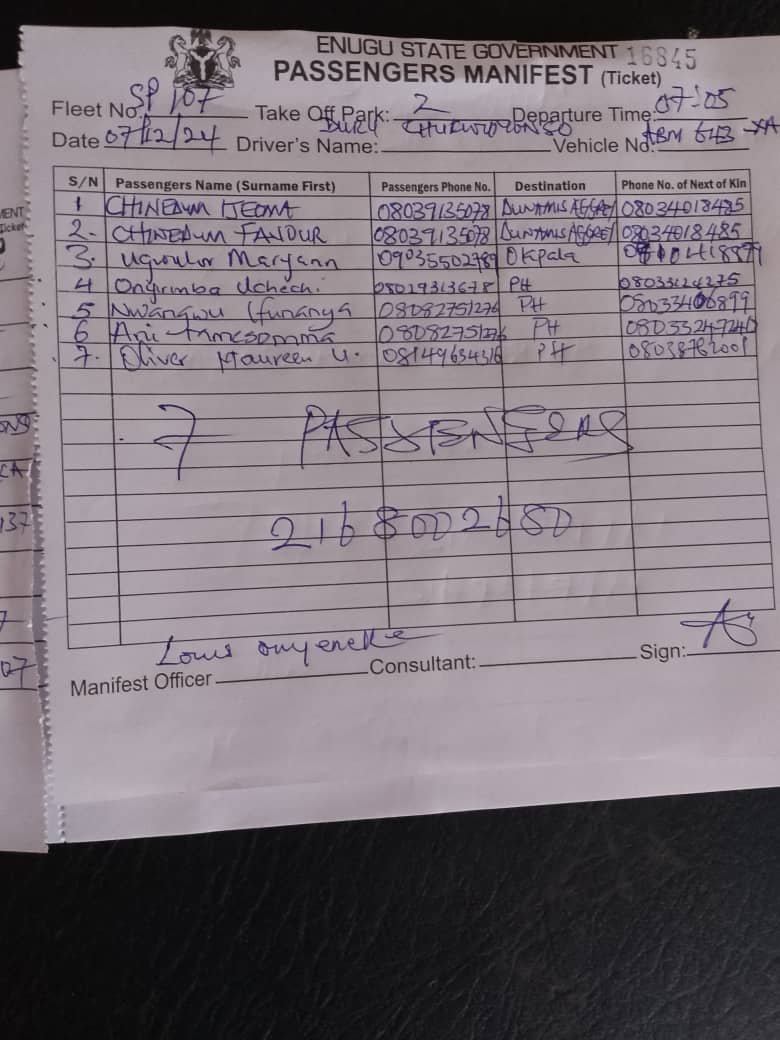 ENUGU STATE GOVERNMENT 16845
PASSENGERS MANIFEST (Ticket)
Fleet No: SP 107 Take Off Park: 2 Departure Time: 07:05
Date 07/12/24 Driver's Name: Vehicle No: ABM 643 XA
S/N Passengers Name (Surname First) Passengers Phone No. Destination Phone No. of Next of Kin
1 CHINEDUM IJEOMA 08039135078 08034018485
2. CHINEDUM FAVOUR 08039135078 08034018485
3. Maryann 09035502789 Okpala
4 Uchechi. 08029313678 PH 08033124275
5 Nwangwu Ifunanya 08082751276 PH 08033406899
6 Ani 08082751276 PH 08053247240
7. Oliver Maureen U. 08149634316 PH 08038762001
7 PASSENGERS
2168002680
Louis Onyeneke
Manifest Officer Consultant: Sign: